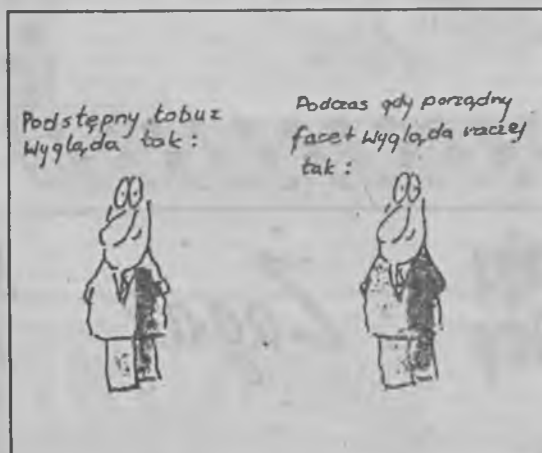 Podstępny łobuz
wygląda tak:
Podczas gdy porządny
facet wygląda raczej
tak: